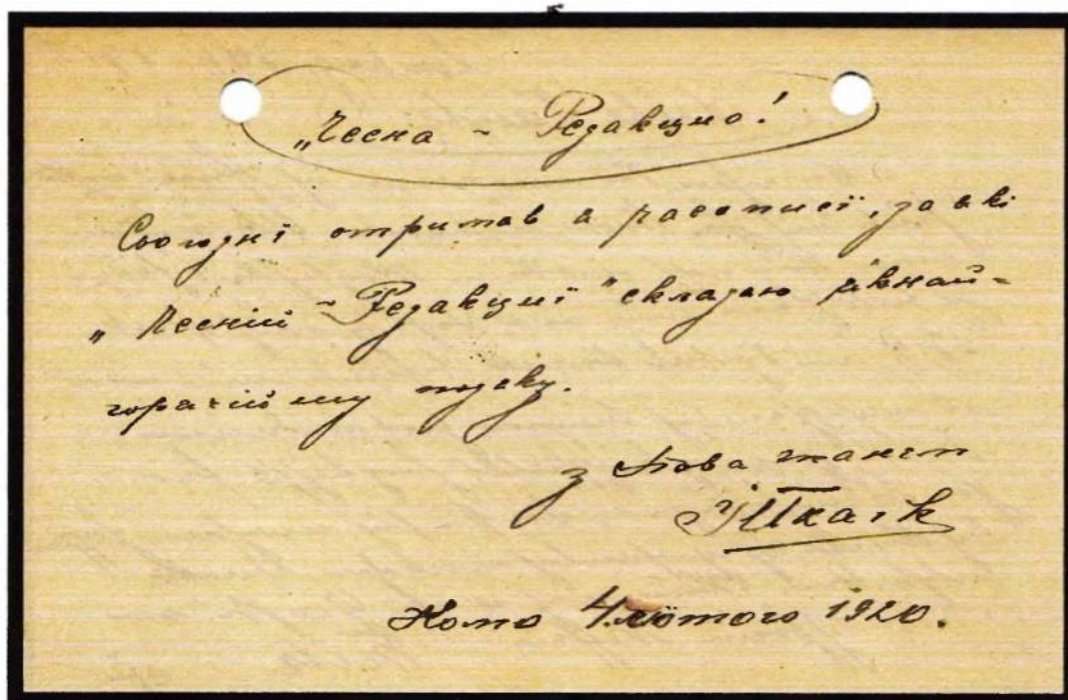 „Чесна ~ Редакцию!
Сьогодні отримав а часописї, за які
„Чесній ~ Редакциї" складаю
горячійшу подяку.
з Поважанєм
Ткачік
4 лютого 1920.